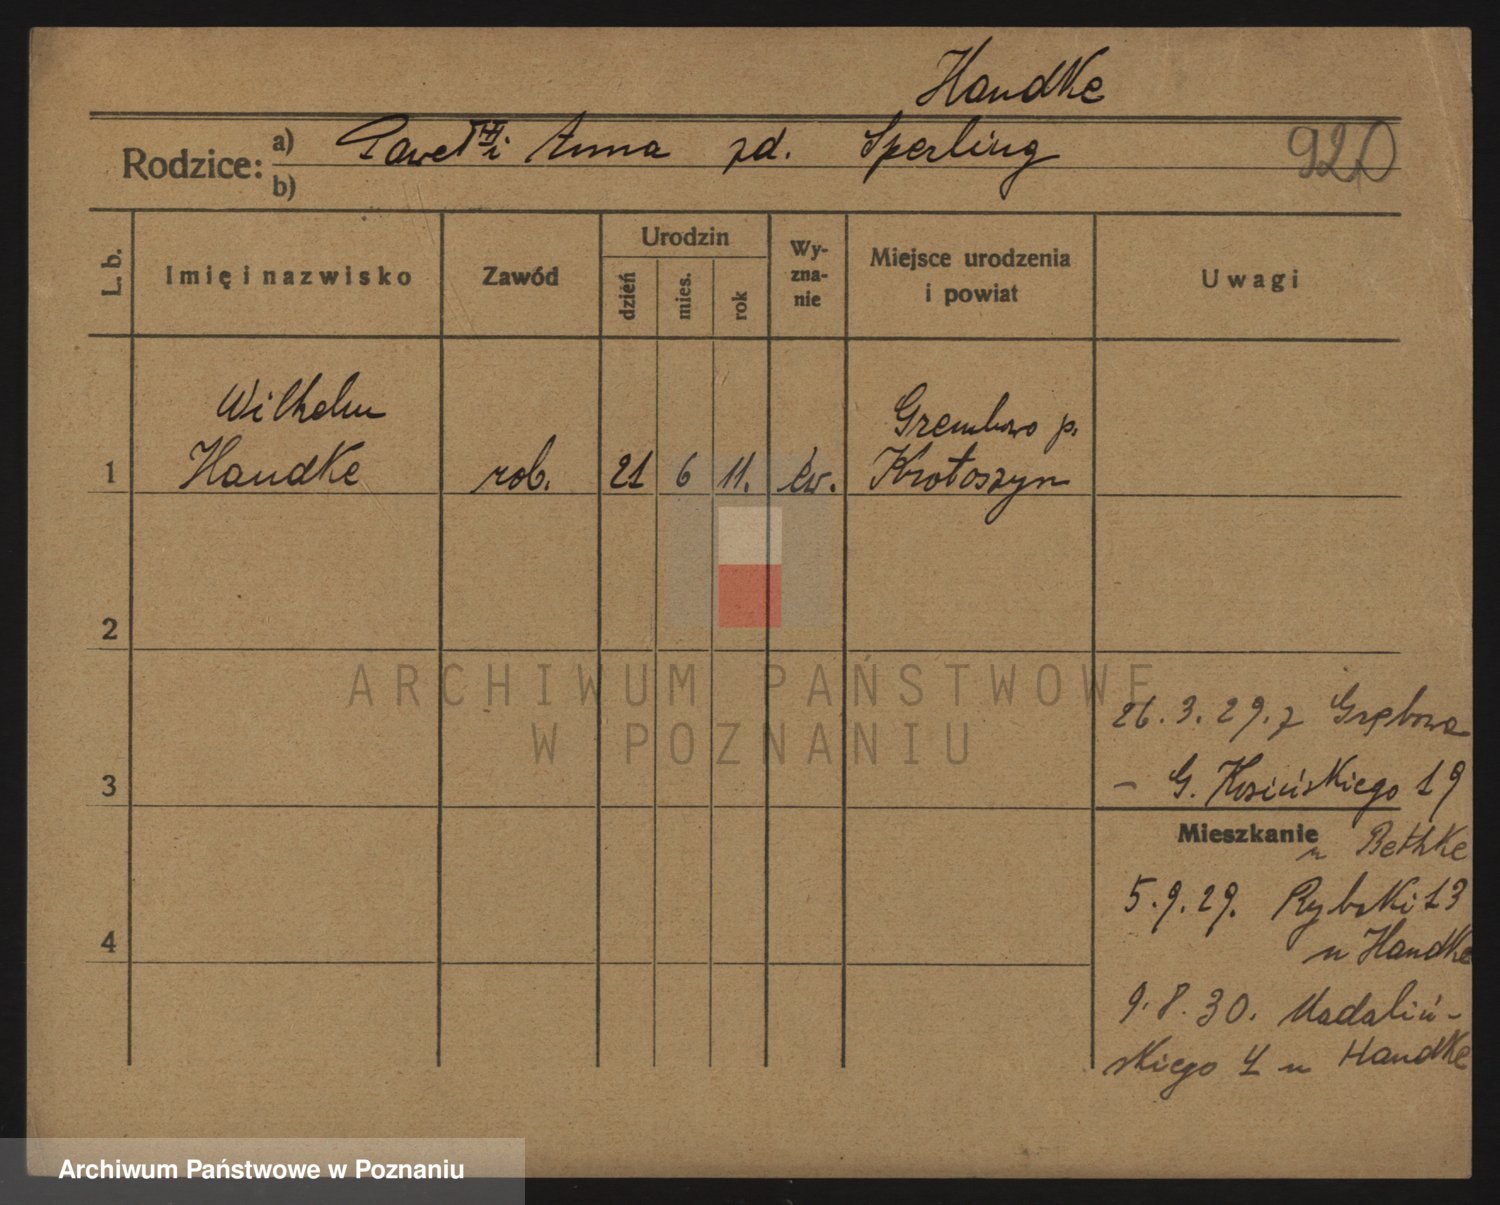 Handke
Rodzice: a) Paweł i Anna zd. Sperling
b)
920
L. b.
Imię i nazwisko
Zawód
Urodzin
dzień
mies.
rok
Wy-
zna-
nie
Miejsce urodzenia
i powiat
Uwagi
Wilhelm
Grembowo p.
1 Handke rob. 21 6 11. ew. Krotoszyn
2
ARCHIWUM PAŃSTWOWE
W POZNANIU
26.3.29. z Grębowa
3 – G. Kosińskiego 19
Mieszkanie
u Bethke
5.9.29. Rybaki 13
4 u Handke
9.8.30. Madaliń-
skiego 4 u Handke
Archiwum Państwowe w Poznaniu